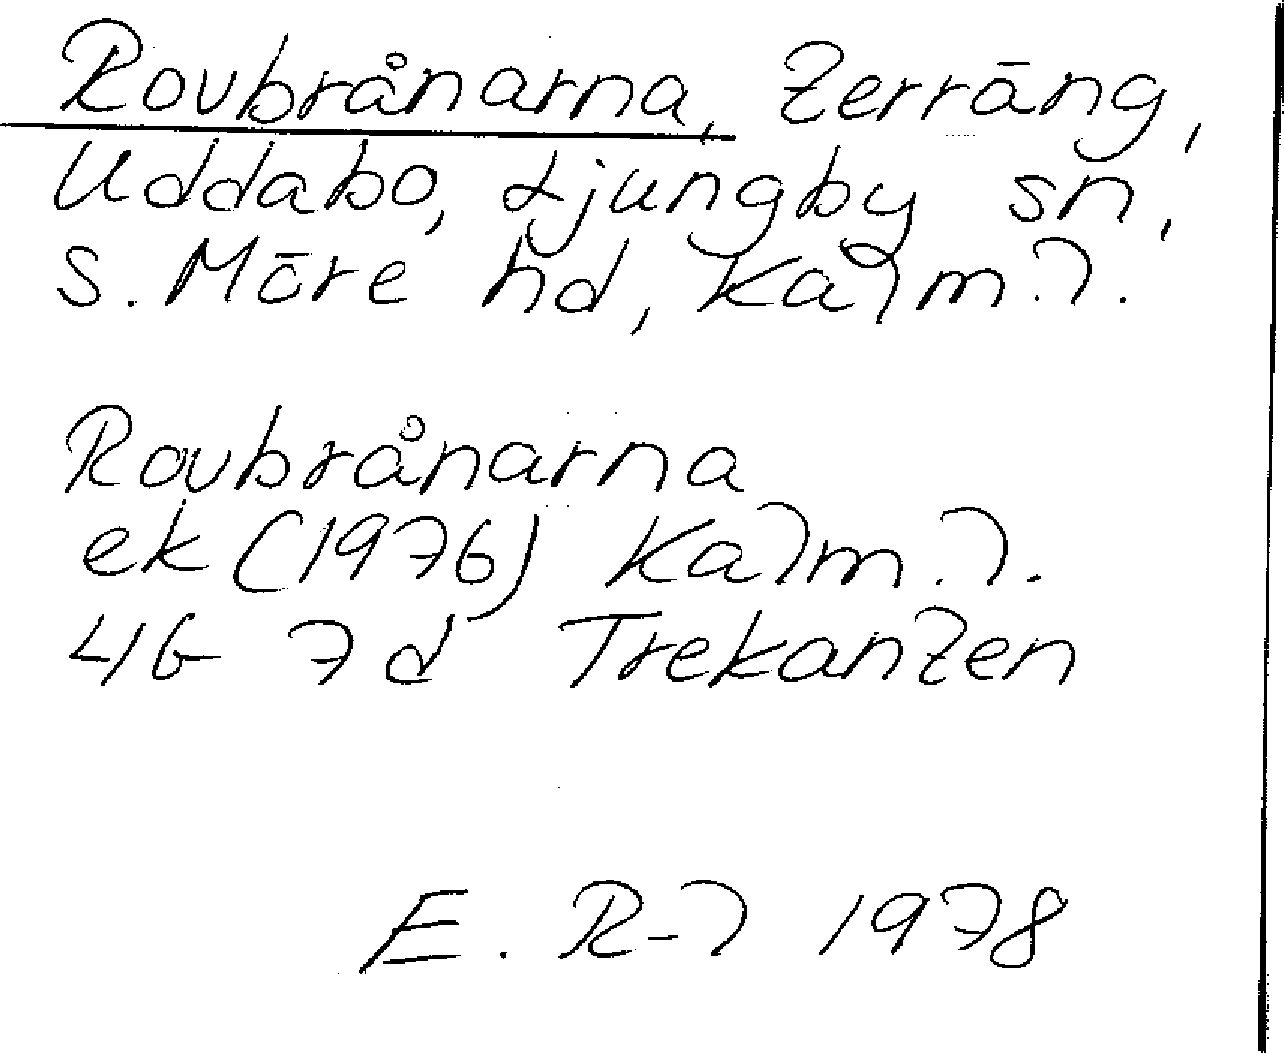 Rovbrånarna, terräng,
Uddabo, Ljungby sn,
S. Möre hd, Kalm. l.
Rovbrånarna
ek (1976) Kalm. l.
4G 7d Trekanten
E. R-l 1978